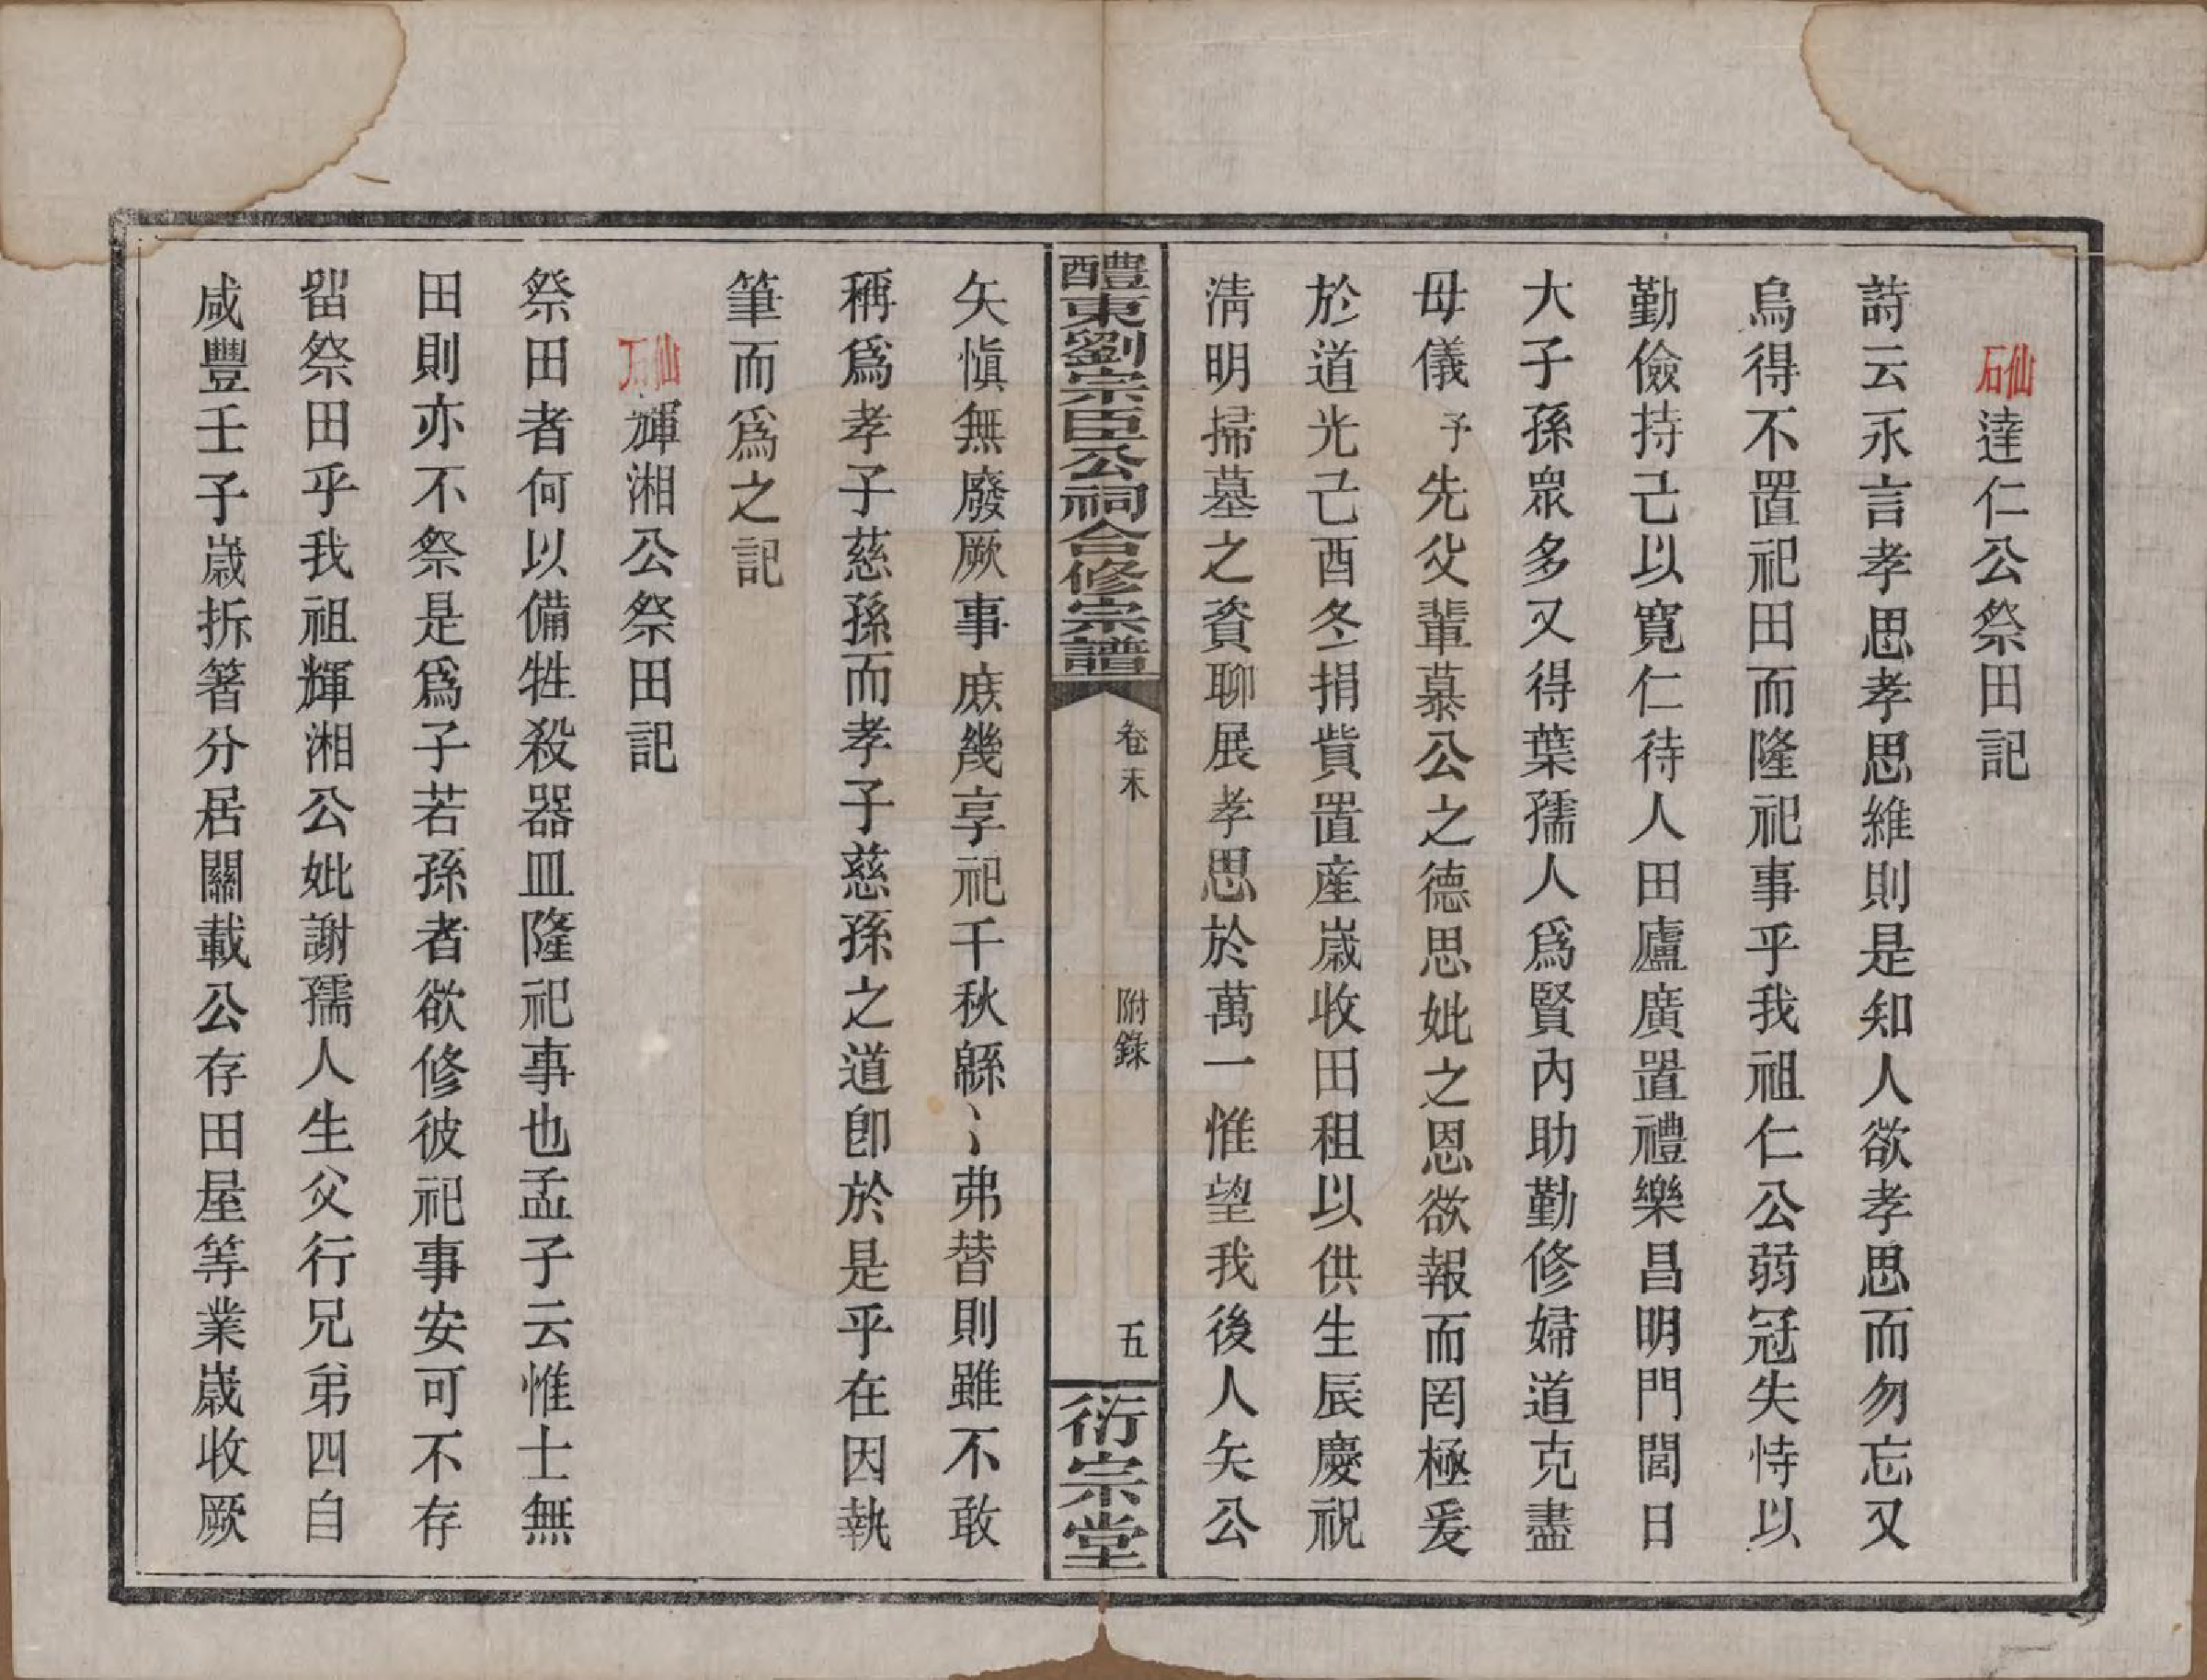 仙石達仁公祭田記
詩云永言孝思孝思維則是知人欲孝思而勿忘又
烏得不置祀田而隆祀事乎我祖仁公弱冠失恃以
勤儉持己以寬仁待人田廬廣置禮樂昌明門閭日
大子孫衆多又得葉孺人爲賢內助勤修婦道克盡
母儀予先父輩慕公之德思妣之恩欲報而罔極爰
於道光己酉冬捐貲置產歲收田租以供生辰慶祝
淸明掃墓之資聊展孝思於萬一惟望我後人矢公
醴東劉宗臣公祠合修宗譜 卷末 附錄 五 衍宗堂
矢愼無廢厥事庶幾享祀千秋緜〻弗替則雖不敢
稱爲孝子慈孫而孝子慈孫之道卽於是乎在因執
筆而爲之記
仙石輝湘公祭田記
祭田者何以備牲殺器皿隆祀事也孟子云惟士無
田則亦不祭是爲子若孫者欲修彼祀事安可不存
留祭田乎我祖輝湘公妣謝孺人生父行兄弟四自
咸豐壬子歲拆箸分居關載公存田屋等業歲收厥